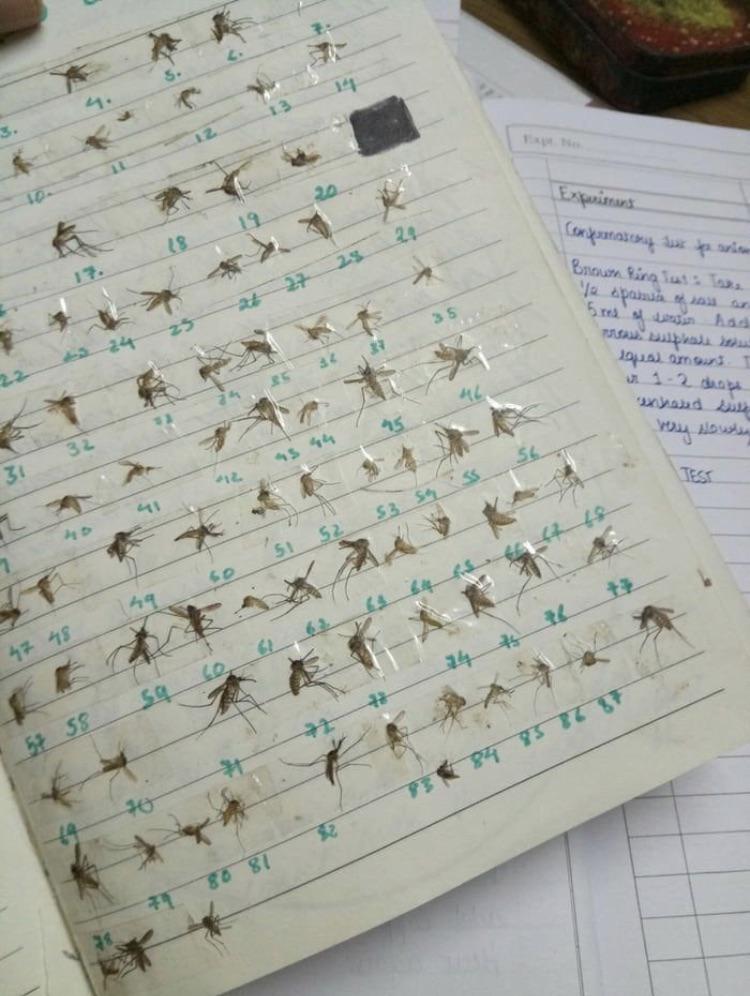 3. 4. 5. 6. 7.
10. 11 12 13 14
17. 18 19 20
22 23 24 25 26 27 28 29
31 32 33 34 35 36 37 35
40 41 42 43 44 45 46
47 48 49 50 51 52 53 54 55 56
57 58 59 60 61 62 63 64 65 66 67 68
69 70 71 72 73 74 75 76 77
78 79 80 81 82 83 84 85 86 87
Expt. No.
Experiment
Confirmatory test for
Brown Ring Test : Take
1/2 spatula of salt
5 ml of water Add
sulphate
equal amount.
1-2 drops
very slowly
TEST